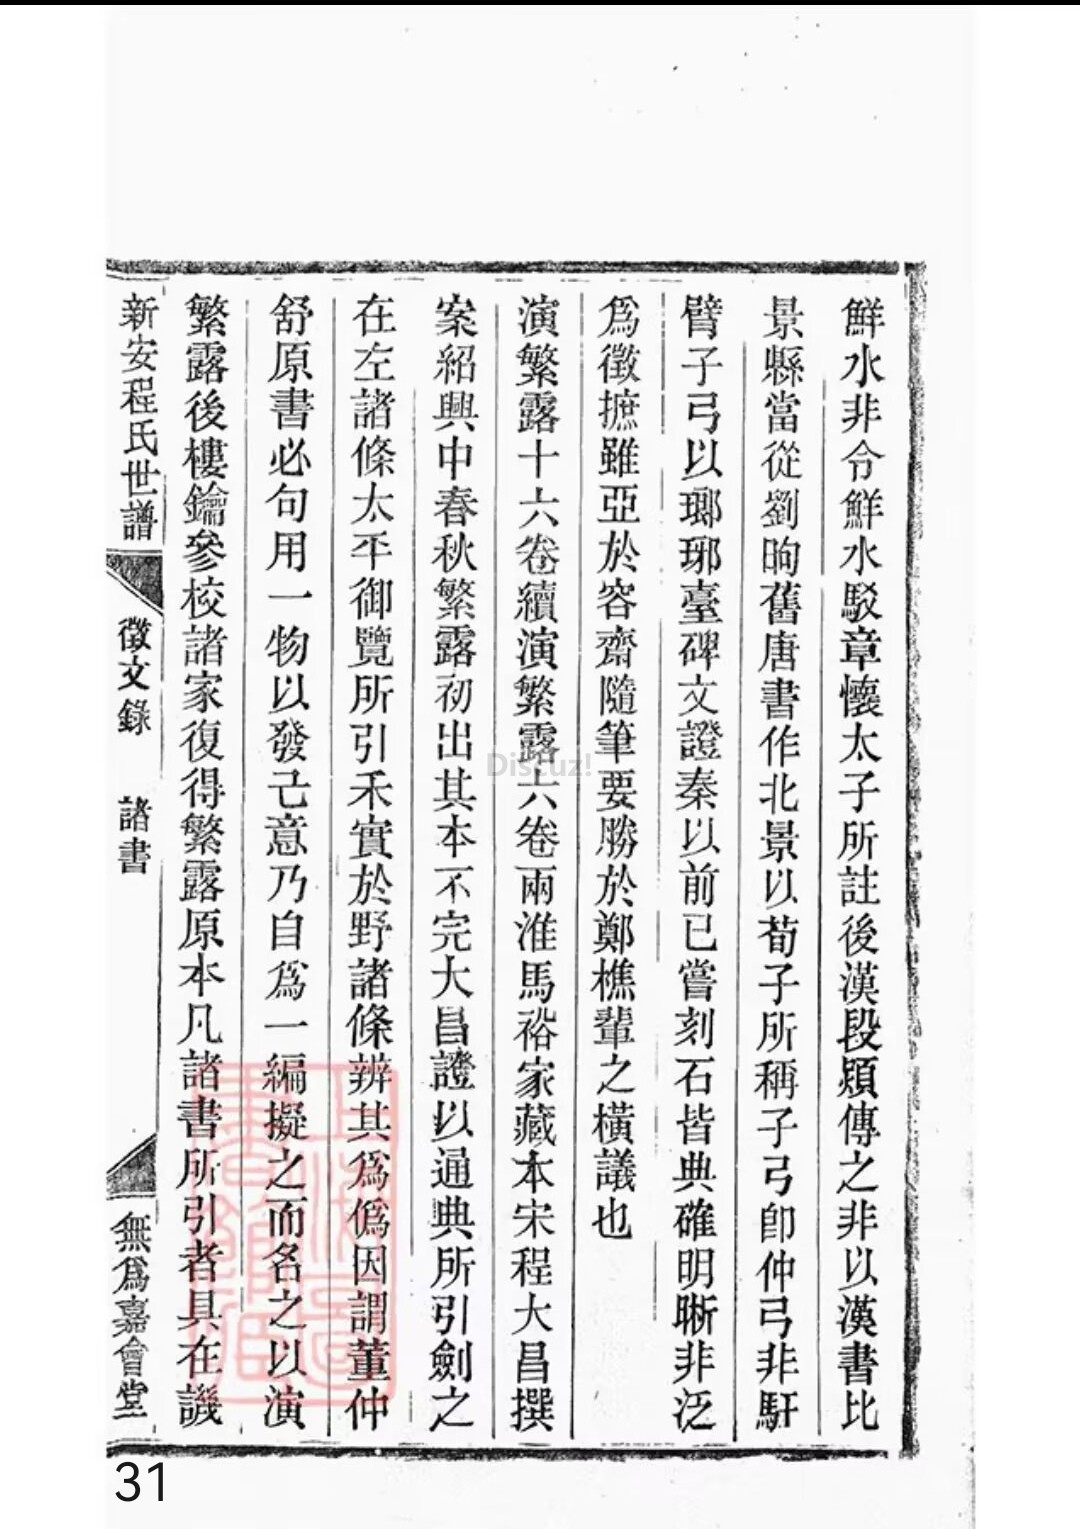 鮮水非令鮮水駁章懷太子所註後漢段熲傳之非以漢書比
景縣當從劉昫舊唐書作北景以荀子所稱子弓卽仲弓非馯
臂子弓以瑯琊臺碑文證秦以前已嘗刻石皆典確明晰非泛
爲徵摭雖亞於容齋隨筆要勝於鄭樵輩之橫議也
演繁露十六卷續演繁露六卷兩淮馬裕家藏本宋程大昌撰
案紹興中春秋繁露初出其本不完大昌證以通典所引劍之
在左諸條太平御覽所引禾實於野諸條辨其爲僞因謂董仲
舒原書必句用一物以發己意乃自爲一編擬之而名之以演
繁露後樓鑰參校諸家復得繁露原本凡諸書所引者具在譏
新安程氏世譜 徵文錄 諸書 無爲嘉會堂
Discuz!
31